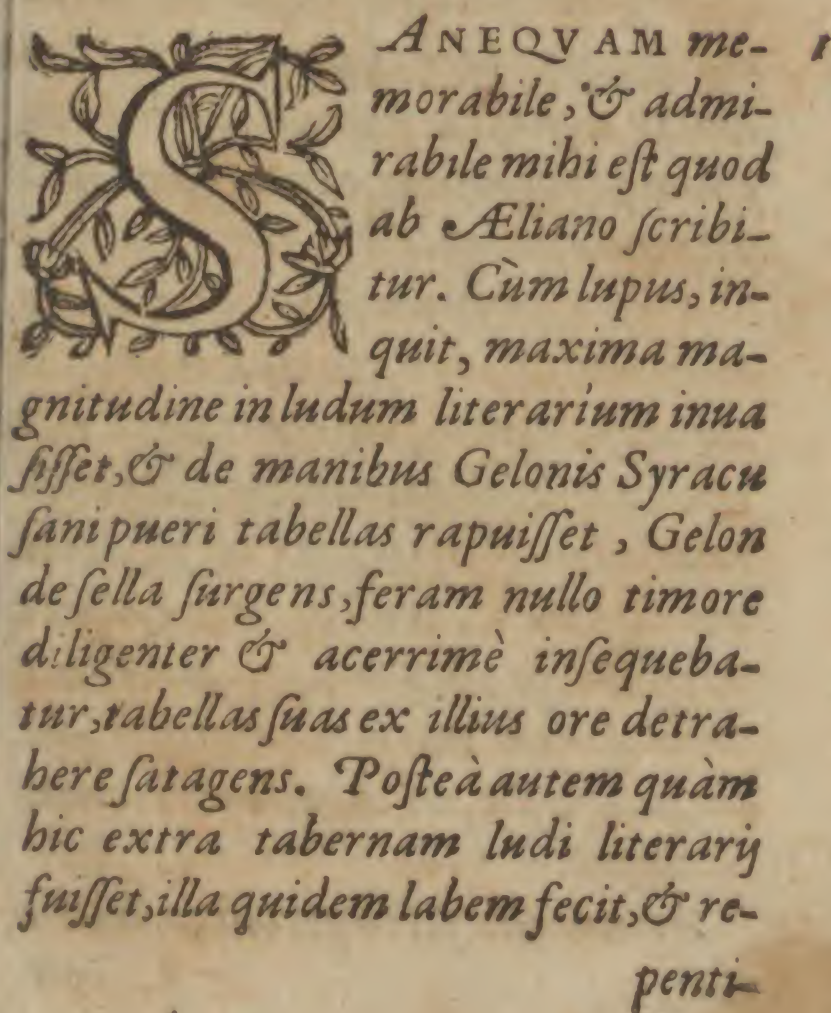 SANEQVAM me-
morabile, & admi-
rabile mihi eſt quod
ab Æliano ſcribi-
tur. Cùm lupus, in-
quit, maxima ma-
gnitudine in ludum literarium inua
ſiſſet, & de manibus Gelonis Syracu
ſani pueri tabellas rapuiſſet, Gelon
de ſella ſurgens, feram nullo timore
diligenter & acerrimè inſequeba-
tur, tabellas ſuas ex illius ore detra-
here ſatagens. Poſteà autem quàm
hic extra tabernam ludi literarij
fuiſſet, illa quidem labem fecit, & re-
penti-